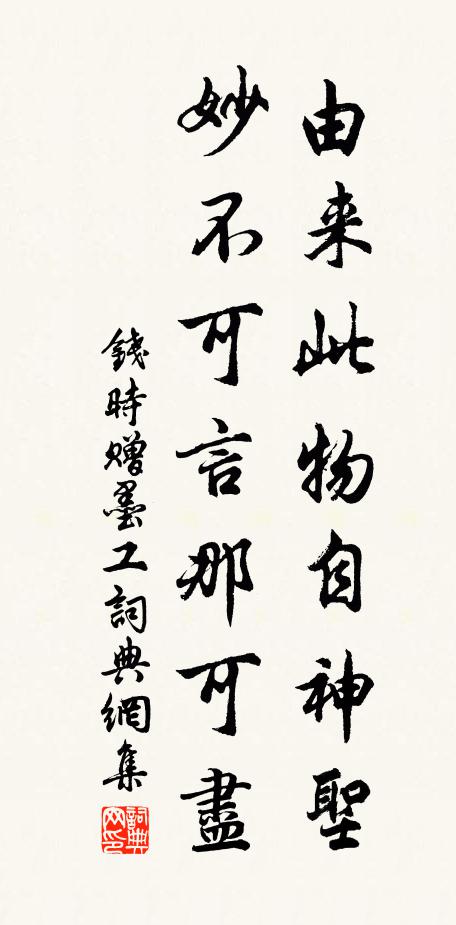 由来此物自神聖
妙不可言那可盡
錢時贈墨工詞典網集
詞典
网印